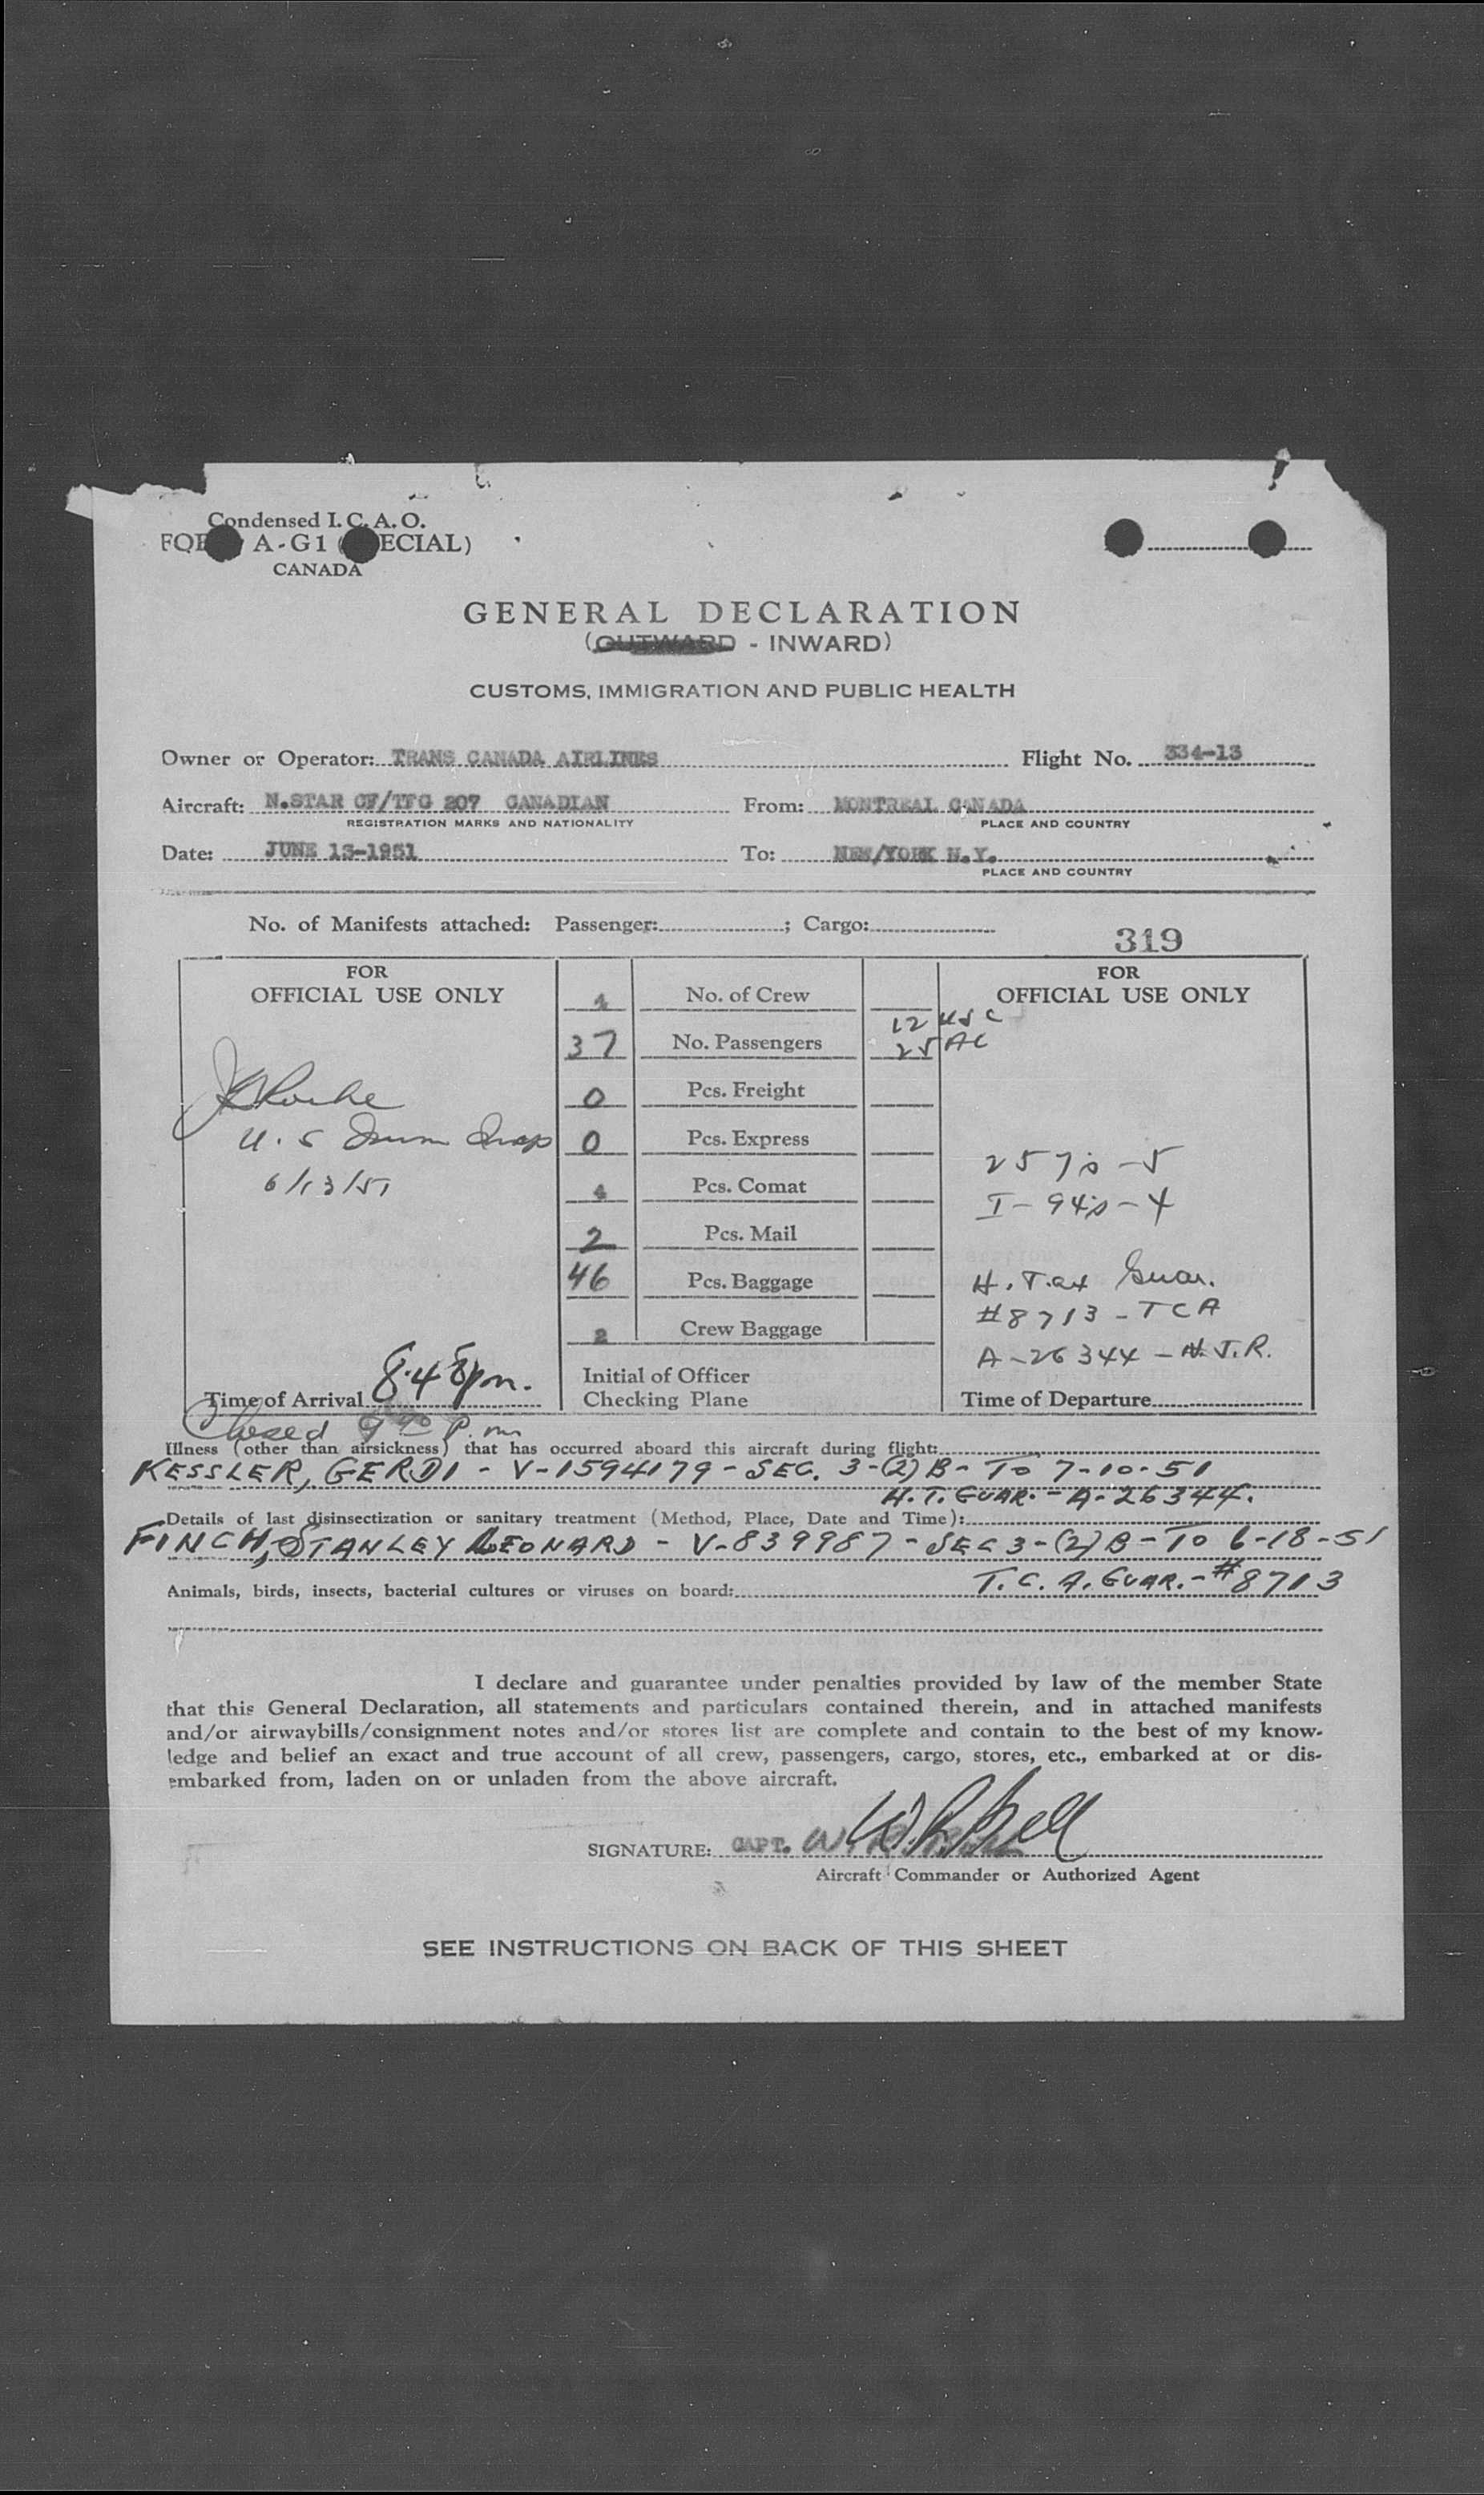 Condensed I. C. A. O.
A-G1 ECIAL)
CANADA
GENERAL DECLARATION
(OUTWARD - INWARD)
CUSTOMS, IMMIGRATION AND PUBLIC HEALTH
Owner or Operator: TRANS CANADA AIRLINES Flight No. 334-13
Aircraft: N.STAR CF/TFG 207 CANADIAN From: MONTREAL CANADA
REGISTRATION MARKS AND NATIONALITY PLACE AND COUNTRY
Date: JUNE 13-1951 To: NEW/YORK N.Y.
PLACE AND COUNTRY
No. of Manifests attached: Passenger: ; Cargo:
319
FOR OFFICIAL USE ONLY
U. S
6/13/51
Time of Arrival 8:48pm.
Closed P.m
No. of Crew
37 No. Passengers 12 USC
25 AC
0 Pcs. Freight
0 Pcs. Express
Pcs. Comat
2 Pcs. Mail
46 Pcs. Baggage
2 Crew Baggage
Initial of Officer
Checking Plane
FOR
OFFICIAL USE ONLY
257's - 5
I-94's - 4
H. Tax Guar.
#8713 - TCA
A-26344 - H.J.R.
Time of Departure
Illness (other than airsickness) that has occurred aboard this aircraft during flight:
KESSLER, GERDI - V-1594179 - SEC. 3-(2) B - TO 7-10-51
H.T. GUAR. - A-26344.
Details of last disinsectization or sanitary treatment (Method, Place, Date and Time):
FINCH, STANLEY LEONARD - V-839987 - SEC 3-(2) B - TO 6-18-51
T.C.A. GUAR. - #8713
Animals, birds, insects, bacterial cultures or viruses on board:
I declare and guarantee under penalties provided by law of the member State
that this General Declaration, all statements and particulars contained therein, and in attached manifests
and/or airwaybills/consignment notes and/or stores list are complete and contain to the best of my know-
ledge and belief an exact and true account of all crew, passengers, cargo, stores, etc., embarked at or dis-
embarked from, laden on or unladen from the above aircraft.
SIGNATURE: CAPT. W R Bell
Aircraft Commander or Authorized Agent
SEE INSTRUCTIONS ON BACK OF THIS SHEET